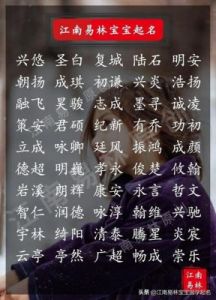 江南易林宝宝起名
兴悠 圣白 复城 陆石 明安
朝扬 成琪 初谦 兴炎 浩扬
融飞 昊骏 志成 墨寻 诚凌
策安 君硕 纪新 有乔 功初
立成 咏卿 廷风 振鸿 成颜
德超 明巍 孝永 俊楚 攸翰
岩溪 朗辉 康安 永言 哲文
智仁 润德 咏淳 翰维 兴驰
宇林 绮阳 清泰 腾星 炎宸
云亭 亭然 广超 畅成 崇乐
江南
易林
头条 @江南易林宝宝国学起名